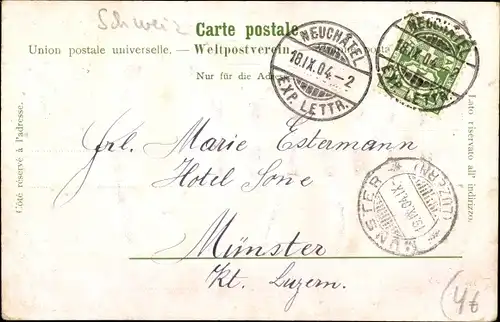 Schweiz
Carte postale
Union postale universelle. — Weltpostverein. — postale
Nur für die Adresse
NEUCHÂTEL
18.IX.04.-2
EXP. LETTR.
NEUCHÂTEL
18.IX.04
EXP. LETTR.
Côté réservé à l'adresse.
Lato riservato all' indirizzo.
Frl. Marie Estermann
Hotel Sone
Münster
Kt. Luzern.
MÜNSTER
19.IX.04.IX
(LUZERN)